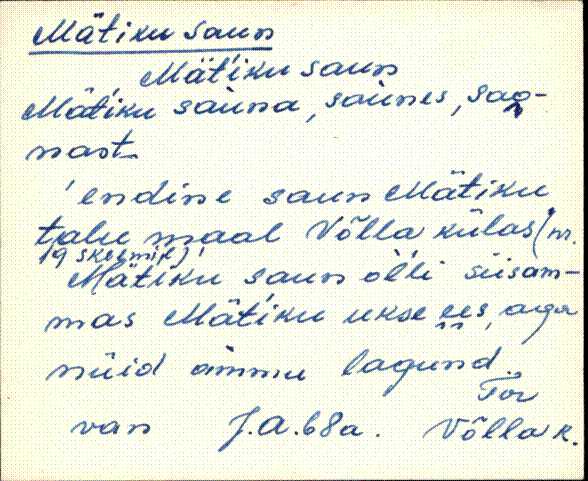 Mätiku saun
Mät'iku saun
Mät'iku sauna, saunes, sao-
nast.
'endine saun Mätiku
talu maal Võlla külas (nr.
19 skeemil)'
Mät'iku saun ol'li siisam-
mas Mät'iku ukse ees, aga
nüid ammu lagund.
Tor
van J.A.68a. Võlla k.